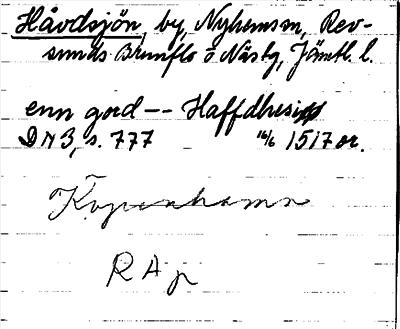 Håvdsjön, by, Nyhems sn, Rev-
sunds Brunflo o Näs tg, Jämtl. l.
enn gord -- Haffdhesiø
DN 3, s. 777 16/6 1517 or.
Köpenhamn
RAp